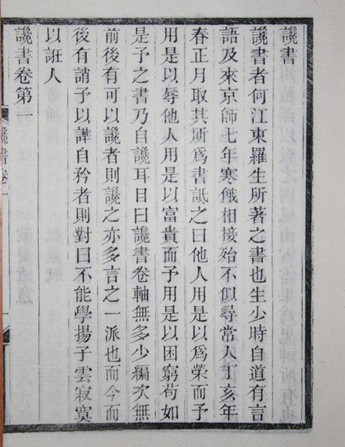 讒書
讒書者何江東羅生所著之書也生少時自道有言
語及來京師七年寒餓相接殆不似尋常人丁亥年
春正月取其所爲書詆之曰他人用是以爲榮而予
用是以辱他人用是以富貴而予用是以困窮苟如
是予之書乃自讒耳目曰讒書卷軸無多少編次無
前後有可以讒者則讒之亦多言之一派也而今而
後有誚予以譁自矜者則對曰不能學揚子雲寂寞
以誑人
讒書卷第一
讒書卷一